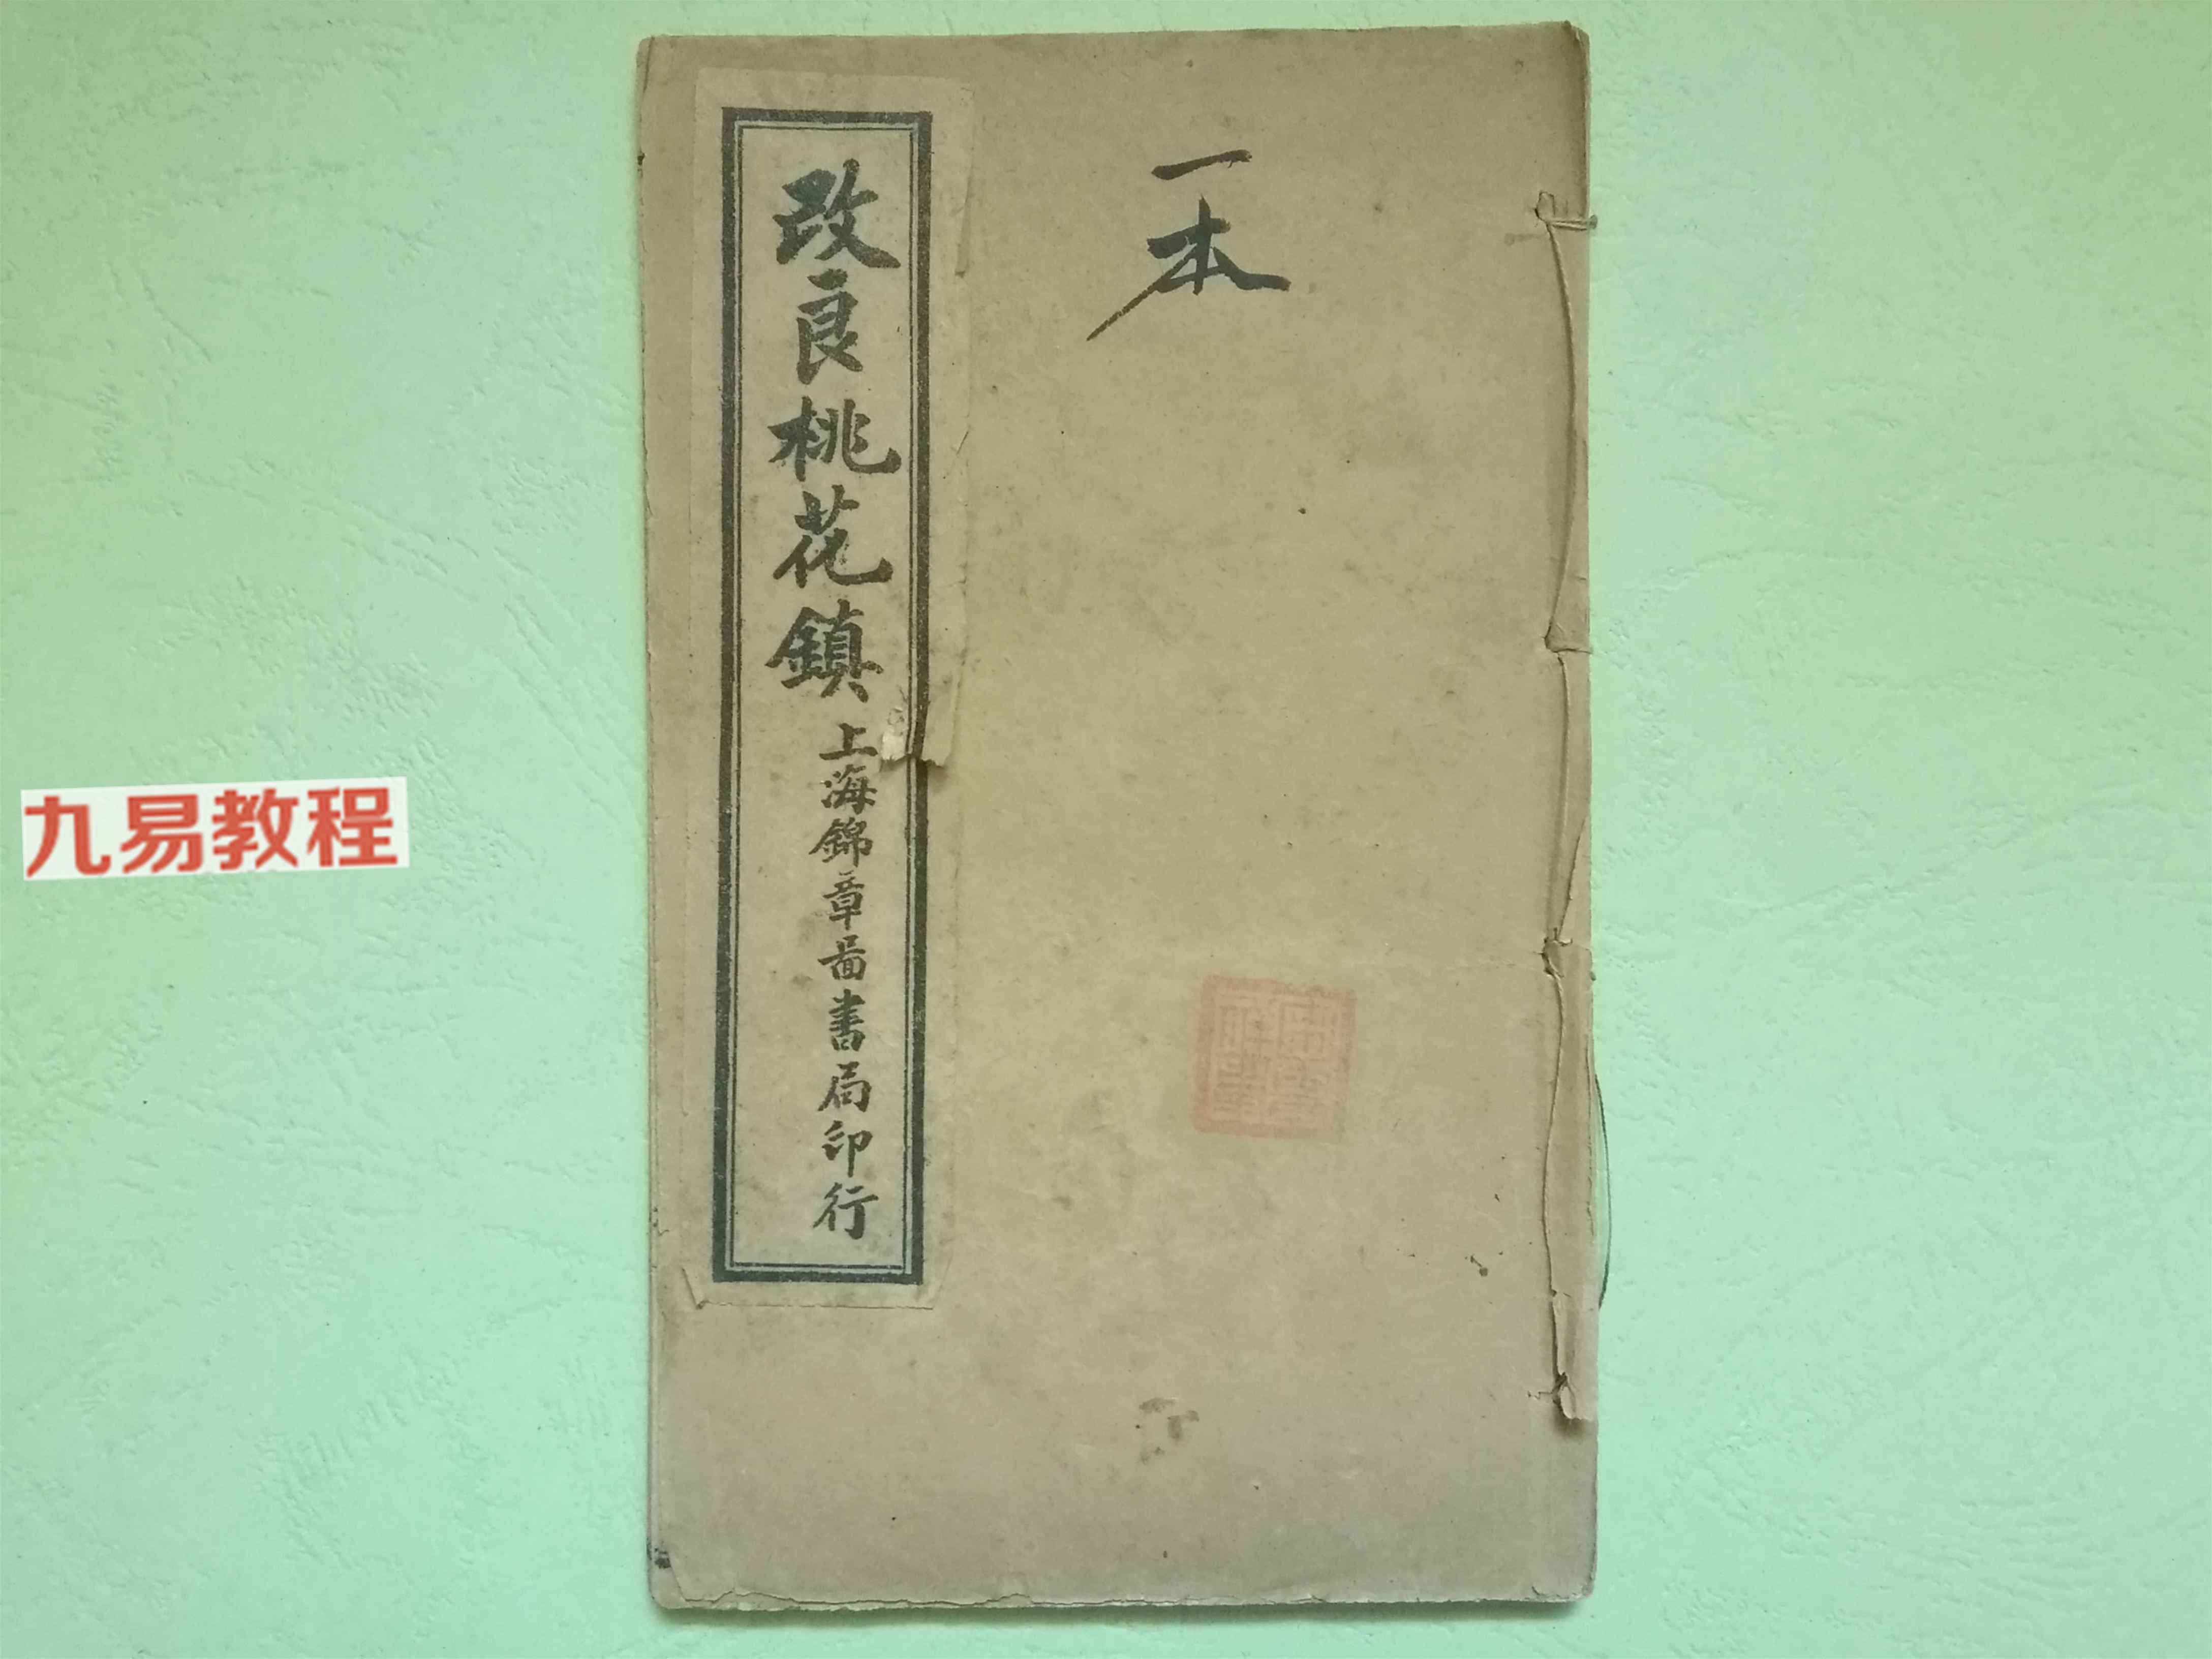 一本
改良桃花鎮
上海錦章啚書局印行
九易教程